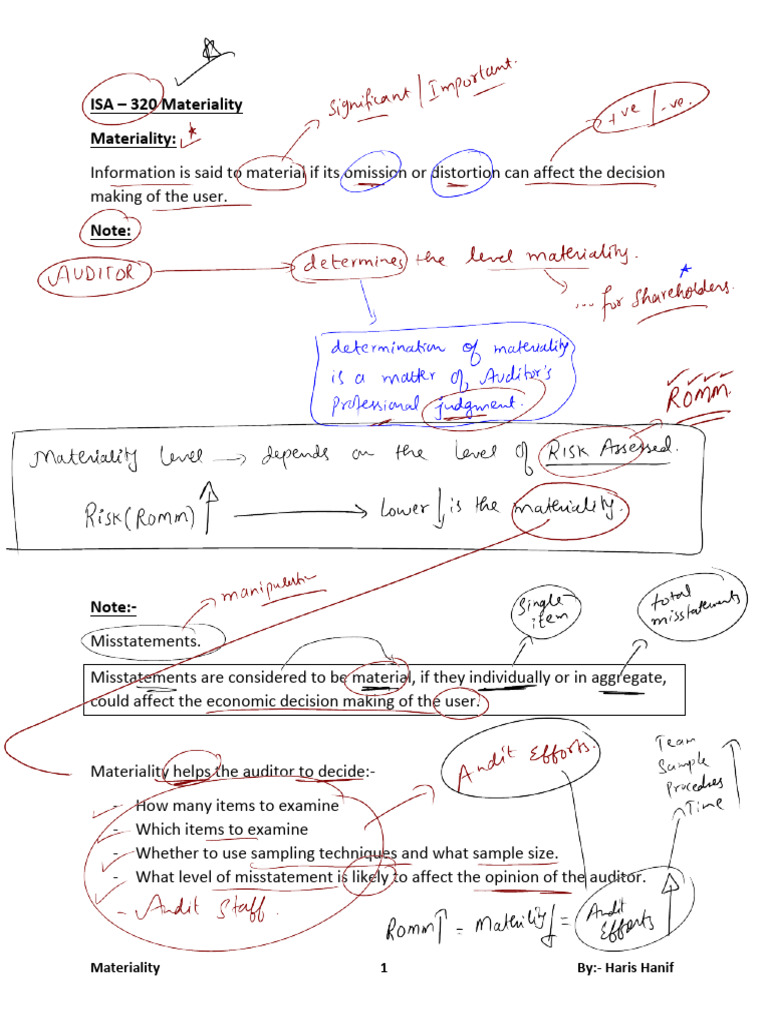 ISA – 320 Materiality
Significant / Important.
+ve / -ve.
Materiality:
Information is said to material if its omission or distortion can affect the decision
making of the user.
Note:
AUDITOR determines the level materiality.
... for shareholders.
determination of materiality
is a matter of, Auditor's
Professional judgment.
ROMM.
Materiality Level → depends on the Level of RISK Assessed.
RISK (ROMM) ↑ → Lower ↓ is the materiality.
manipulation
Note:-
Single item
total misstatements
Misstatements.
Misstatements are considered to be material, if they individually or in aggregate,
could affect the economic decision making of the user.
Audit Efforts.
Team
Sample
Procedures
Time
Materiality helps the auditor to decide:-
- How many items to examine
- Which items to examine
- Whether to use sampling techniques and what sample size.
- What level of misstatement is likely to affect the opinion of the auditor.
- Audit Staff.
ROMM↑ = Materility↓ = Audit Efforts ↑
Materiality 1 By:- Haris Hanif